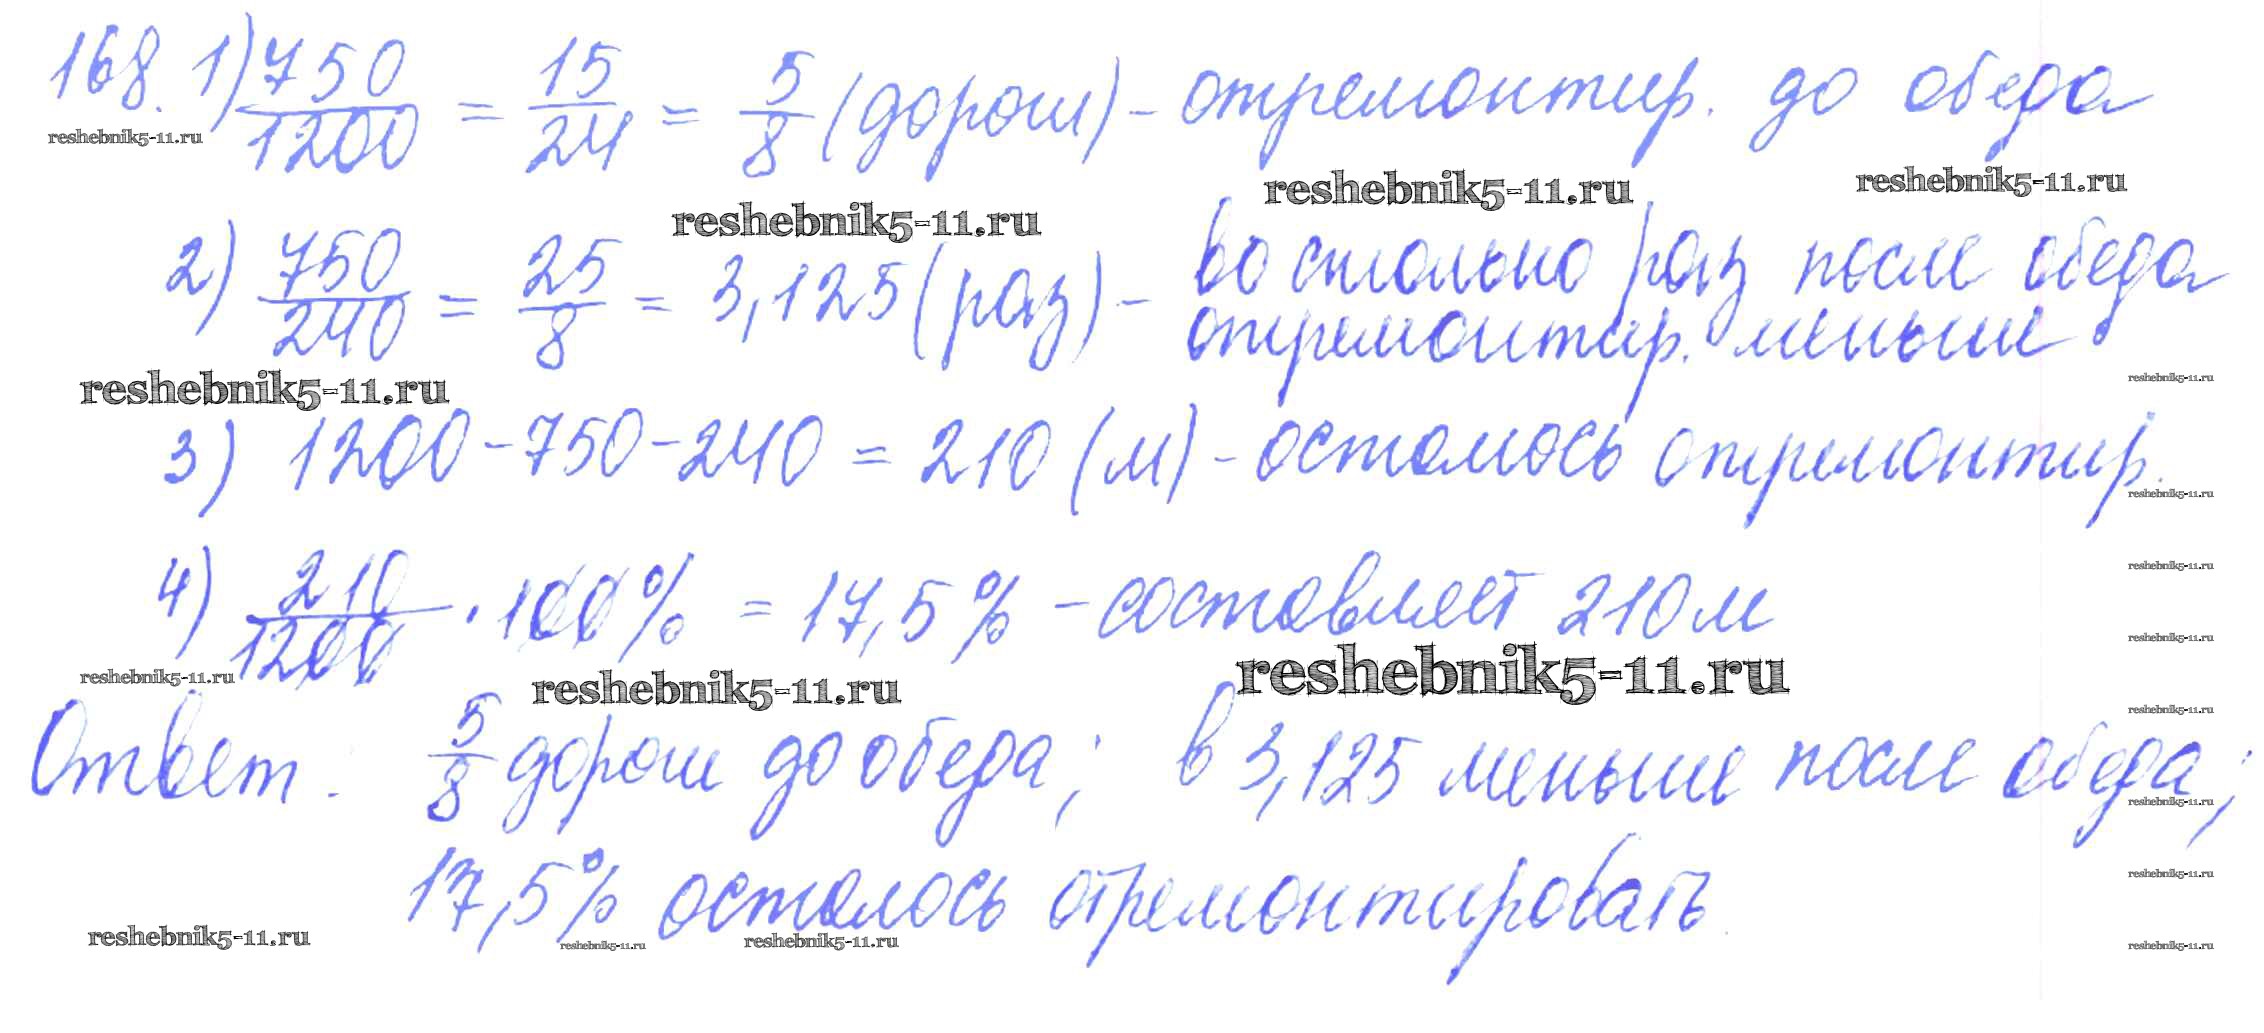 168. 1) 750/1200 = 15/24 = 5/8 (дороги) - отремонтир. до обеда
reshebnik5-11.ru
reshebnik5-11.ru
reshebnik5-11.ru
reshebnik5-11.ru
2) 750/240 = 25/8 = 3,125 (раз) - во сколько раз после обеда
отремонтир. меньше
reshebnik5-11.ru
reshebnik5-11.ru
3) 1200 - 750 - 240 = 210 (м) - осталось отремонтир.
reshebnik5-11.ru
reshebnik5-11.ru
4) 210/1200 · 100% = 17,5% - составляет 210 м
reshebnik5-11.ru
reshebnik5-11.ru
reshebnik5-11.ru
reshebnik5-11.ru
reshebnik5-11.ru
Ответ: 5/8 дороги до обеда; в 3,125 меньше после обеда;
reshebnik5-11.ru
17,5% осталось отремонтировать.
reshebnik5-11.ru
reshebnik5-11.ru
reshebnik5-11.ru
reshebnik5-11.ru
reshebnik5-11.ru